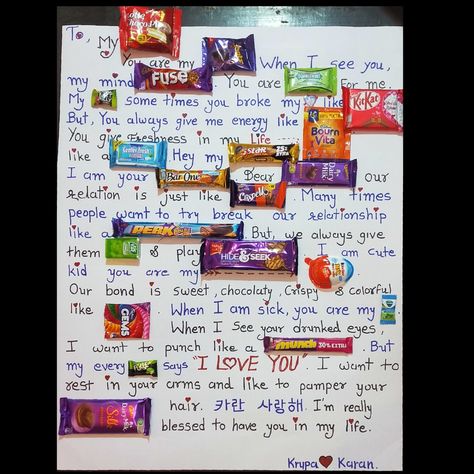 To,
My Choco Pie
You are my When I see you,
my mind FUSE You are For me.
My some times you broke my like KitKat
But, You always give me energy like Bourn Vita
You give freshness in my life
like a Center fresh Hey my 5 STAR
I am your Bar One Dear Dairy Milk our
relation is just like Crispello . Many times
people want to try break our relationship
like a PERK But, we always give
them & play HIDE & SEEK I am cute
kid you are my
Our bond is sweet, chocolaty, Crispy & colorful
like GEMS . When I am sick, you are my
When I see your drunked eyes,
I want to punch like a munch 30% EXTRA . But
my every says "I LOVE YOU". I want to
rest in your arms and like to pamper your
Dairy Milk Silk hair. 카란 사랑해. I'm really
blessed to have you in my life.
Krupa Karan.